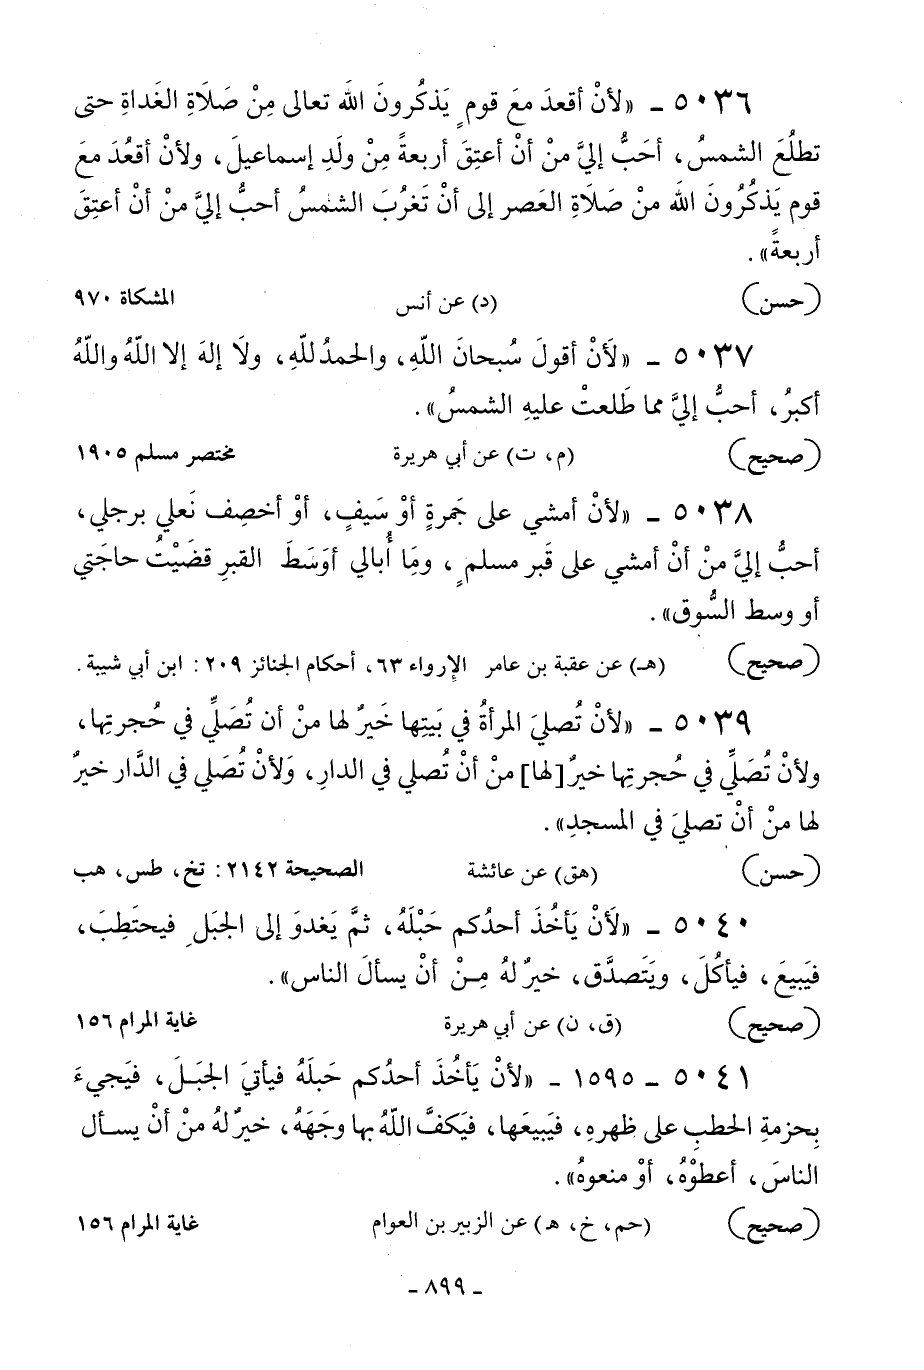 ٥٠٣٦ ـ «لأنْ أقعدَ معَ قومٍ يَذكُرونَ اللهَ تعالى مِنْ صَلَاةِ الغَداةِ حتى
تطلُعَ الشمسُ، أحَبُّ إليَّ منْ أنْ أعتِقَ أربعةً مِنْ ولَدِ إسماعيلَ، ولأنْ أقعُدَ معَ
قوم يَذكُرُونَ اللهَ منْ صَلَاةِ العَصر إلى أنْ تَغرُبَ الشمسُ أحبُّ إليَّ منْ أنْ أعتِقَ
أربعةً».
(حسن) (د) عن أنس المشكاة ٩٧٠
٥٠٣٧ ـ «لَأنْ أقولَ سُبحانَ اللّهِ، والحمدُ للّهِ، ولَا إلهَ إلا اللّهُ واللّهُ
أكبرُ، أحبُّ إليَّ مما طَلعتْ عليهِ الشمسُ».
(صحيح) (م، ت) عن أبي هريرة مختصر مسلم ١٩٠٥
٥٠٣٨ ـ «لأنْ أمشي على جَمرةٍ أوْ سَيفٍ، أوْ أخصِف نَعلي برجلي،
أحبُّ إليَّ منْ أنْ أمشي على قَبر مسلمٍ، ومَا أُبالي أوَسَطَ القبرِ قضَيْتُ حاجَتي
أو وسط السُّوق».
(صحيح) (هـ) عن عقبة بن عامر الإرواء ٦٣، أحكام الجنائز ٢٠٩: ابن أبي شيبة.
٥٠٣٩ ـ «لأنْ تُصليَ المرأةُ في بَيتِها خَيرٌ لها منْ أن تُصَلِّي في حُجرتِها،
ولأنْ تُصَلِّي في حُجرتِها خيرٌ [لها] منْ أنْ تُصلي في الدارِ، وَلأنْ تُصَلي في الدَّار خيرٌ
لها منْ أنْ تصليَ في المسجدِ».
(حسن) (هق) عن عائشة الصحيحة ٢١٤٢: تخ، طس، هب
٥٠٤٠ ـ «لَأنْ يَأخُذَ أحدُكم حَبْلَهُ، ثمَّ يَغدوَ إلى الجَبَلِ فيحتَطِبَ،
فيَبيعَ، فيأكُلَ، ويَتَصدَّق، خيرٌ لهُ مِـنْ أنْ يسألَ الناس».
(صحيح) (ق، ن) عن أبي هريرة غاية المرام ١٥٦
٥٠٤١ ـ ١٥٩٥ ـ «لأنْ يَأخُذَ أحدُكم حَبلَهُ فيأتيَ الجَبَـلَ، فيَجيءَ
بِحزمةِ الحطبِ على ظهرهِ، فيَبيعَها، فيَكفَّ اللّهُ بها وجَهَهُ، خيرٌ لهُ منْ أنْ يسـأل
الناسَ، أعطوْهُ، أوْ منعوهُ».
(صحيح) (حم، خ، هـ) عن الزبير بن العوام غاية المرام ١٥٦
ـ ٨٩٩ ـ